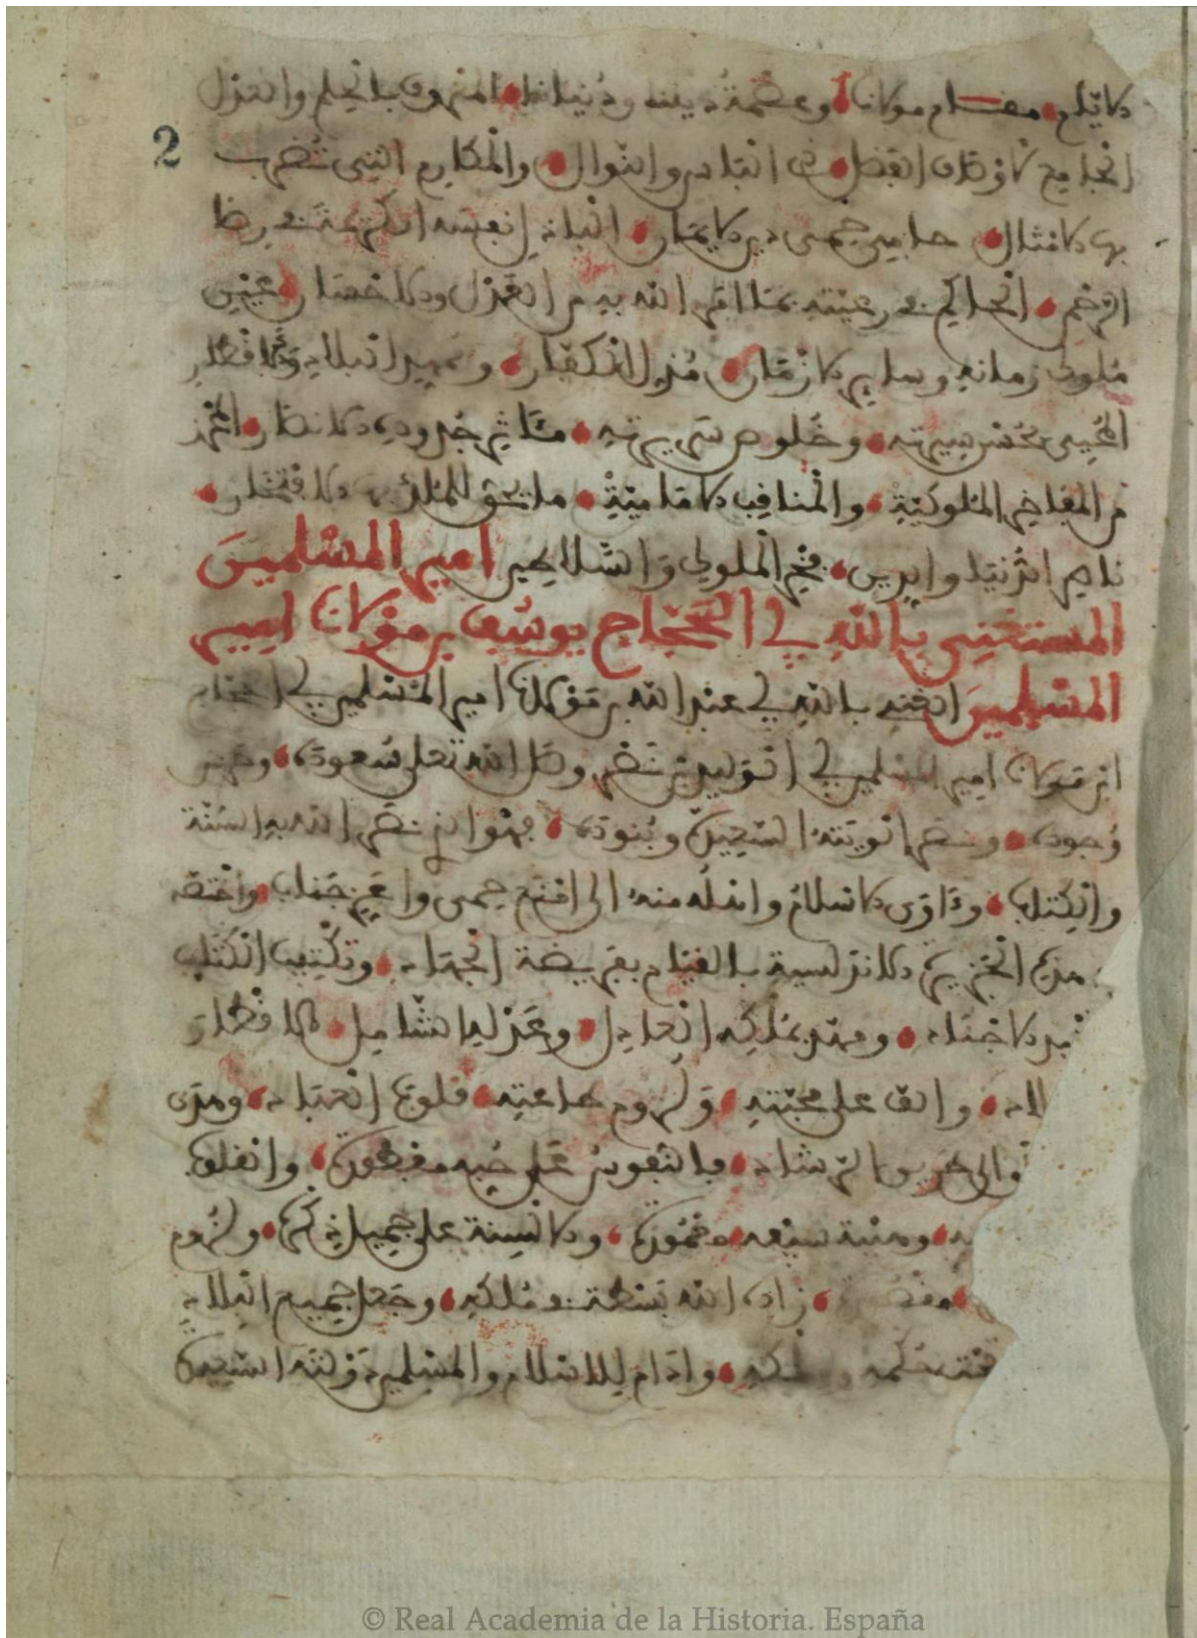 الايام مقام مولانا وعصمة ديننا ودنيانا المعروف بالحلم والعدل
2
الجامع لاوصاف الفضل في الباس والنوال والمكارم التي تضرب
بها الامثال حامي حمى دين الايمان الباذل نفسه الكريمة في رضا
الرحمن الحاكم في رعيته بما امر الله به من العدل والاحسان عين
ملوك زمانه وساير الازمان مذل الكفار وممهد البلاد والاقطار
المحيي بحسن سيرته وخلوص سريرته مآثر جدوده الانصار المحرز
من المفاخر الملوكية والمناقب الامامية ما يحق للملك به الافتخار
ناصر الدنيا والدين فخر الملوك والسلاطين امير المسلمين
المستغني بالله ابي الحجاج يوسف بن مولانا امير
المسلمين الغني بالله ابي عبد الله بن مولانا امير المسلمين ابي الحجاج
ابن مولانا امير المسلمين ابي الوليد بن نصر وصل الله تعلى سعوده وحرس
وجوده ونصر الويته السعيدة وبنوده فهو الذي نصر الله به السنة
والكتاب وءاوى الاسلام واهله منه الى امنع حمى واعز جناب واختصه
هذه الجزيرة الاندلسية بالقيام بفريضة الجهاد وتكتيب الكتايب
الاجناد ومهد بملكه العادل وعدله الشامل الاقطار
لاد والف على محبته ولزوم طاعته قلوب العباد وهدى
والى طريق الرشاد فالنفوس على حبه مفطورة والقلوب
به وهيبة سيفه معمورة والالسنة على جميل ذكره ولزوم
زاد الله بسطة في ملكه وجعل جميع البلاد
تحت حكمه وملكه وادام للاسلام والمسلمين دولته السعيدة
© Real Academia de la Historia. España